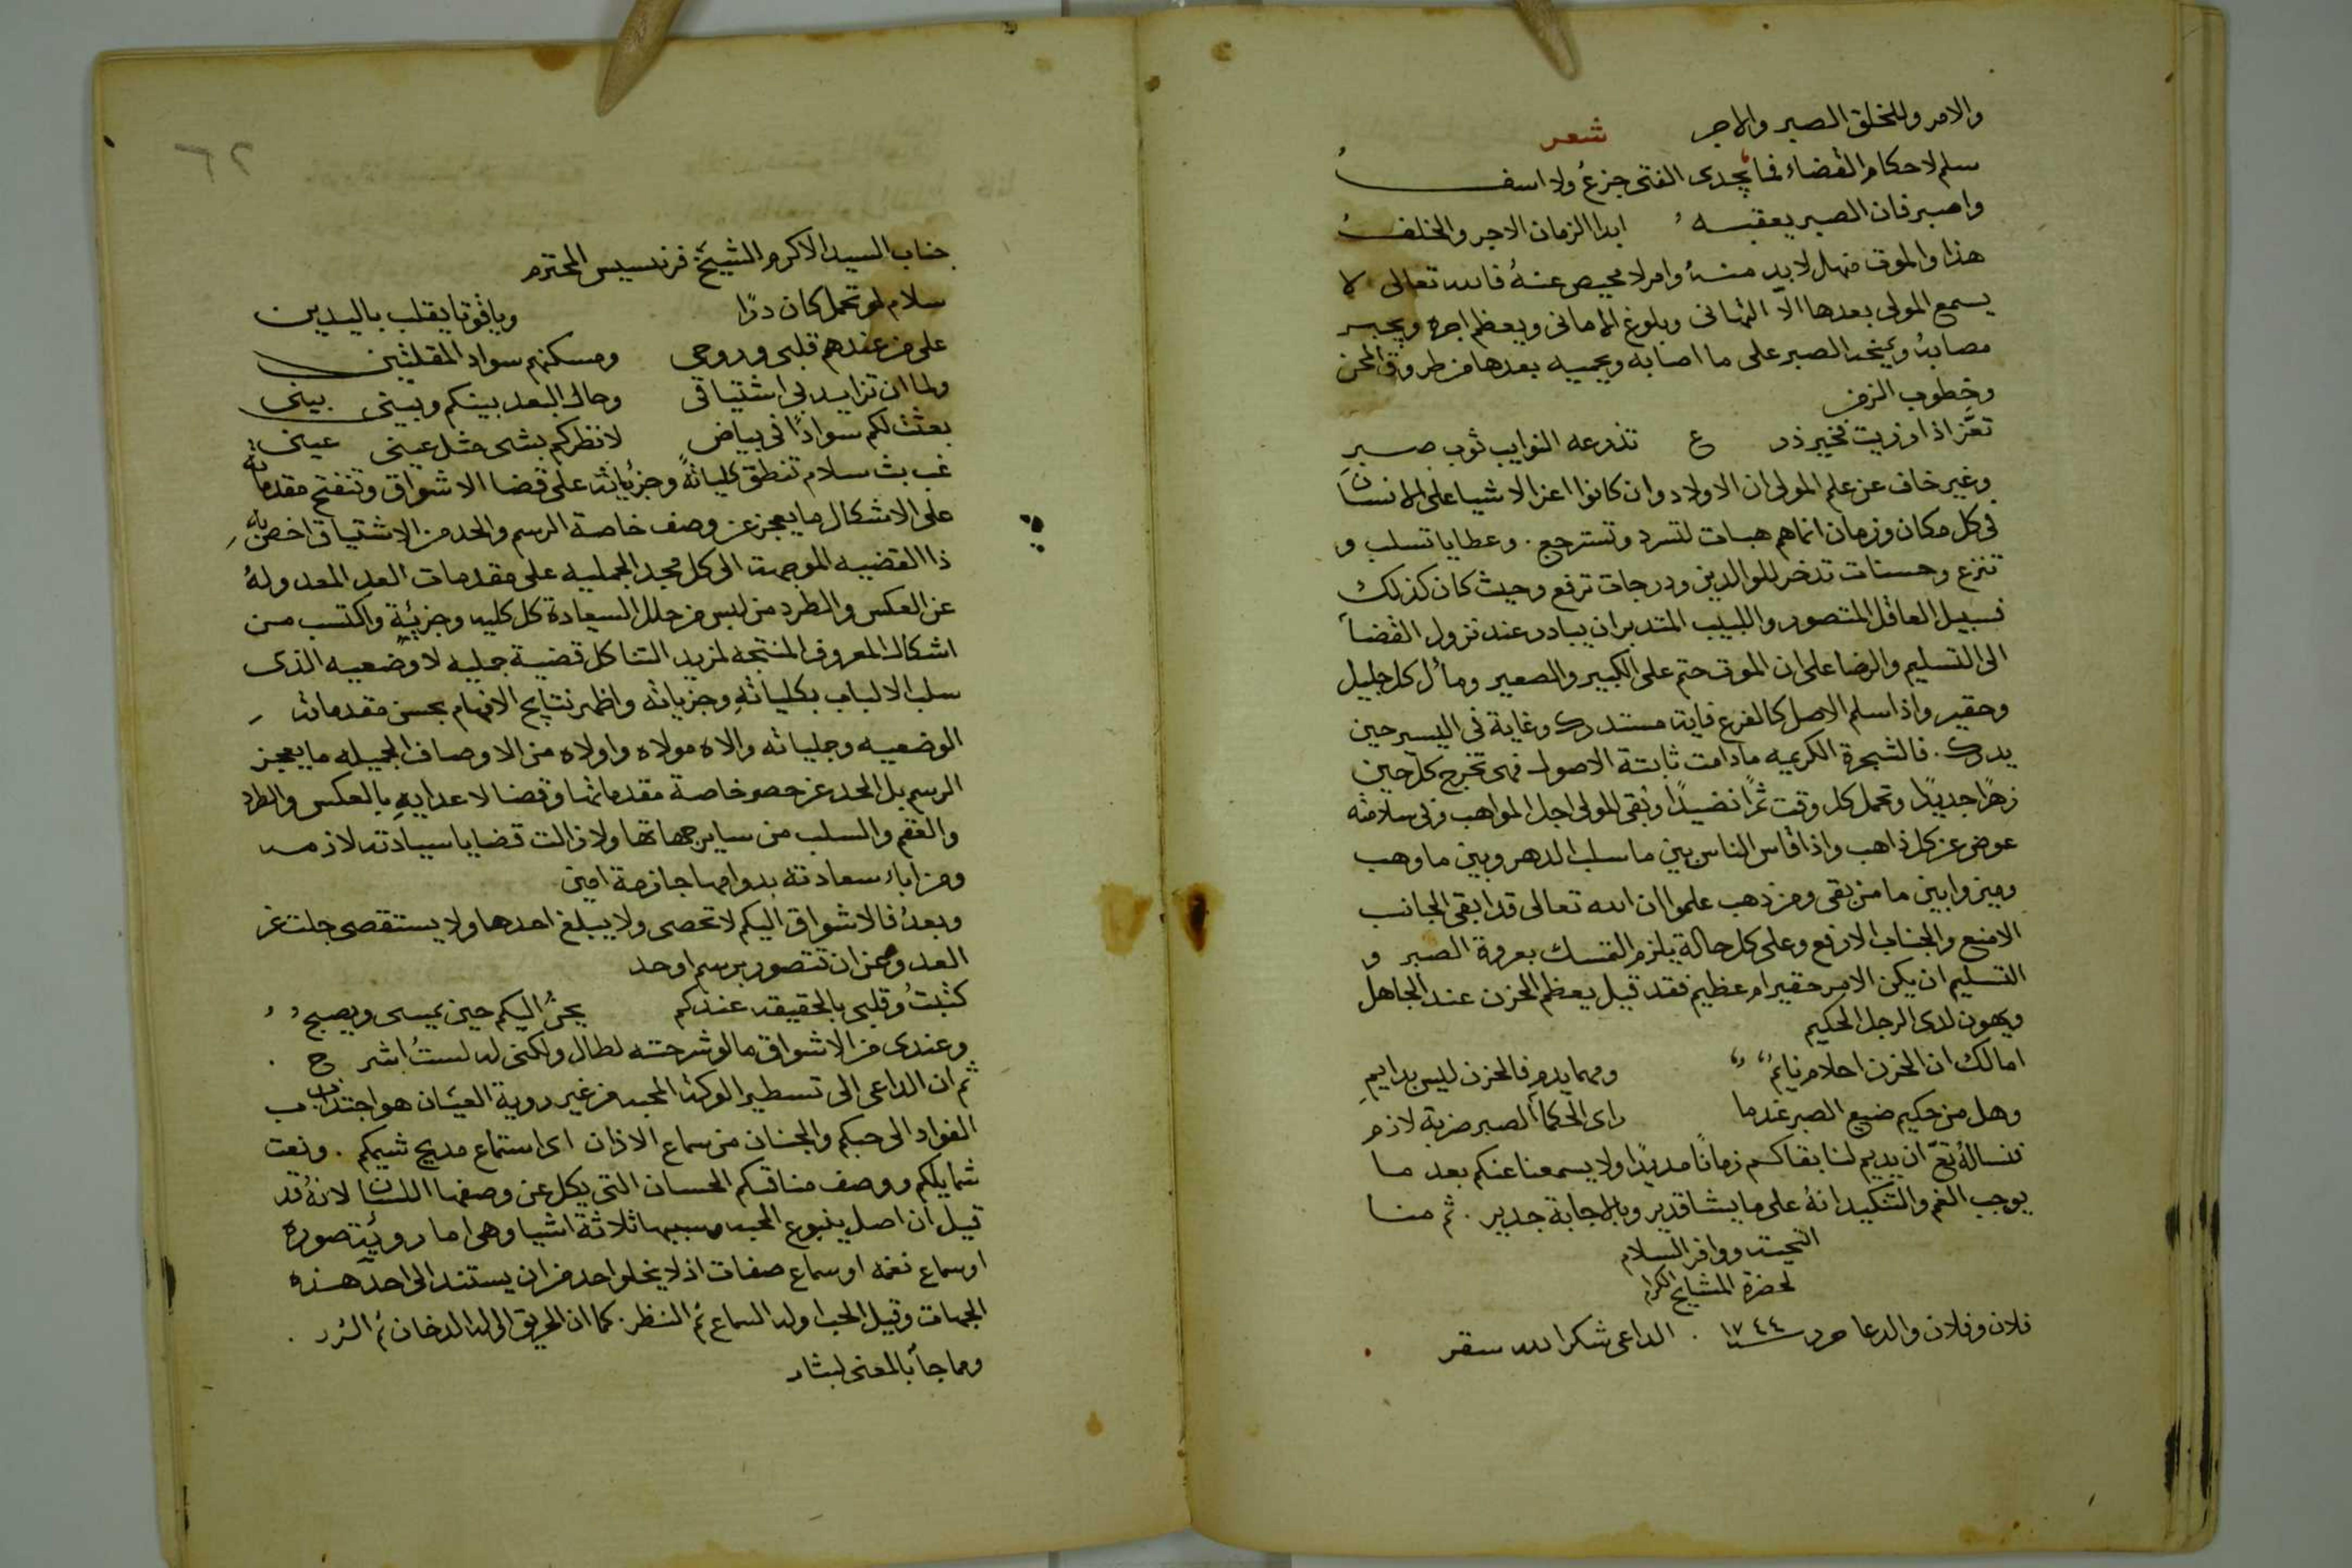 والامر وللخلق الصبر والاجر شعر
سلم لاحكام القضاء فما يجدى الفتى جزعُ ولا اسفُ
واصبر فان الصبر يعقبه ابدا الزمان الاجر والخلفُ
هذا والموت منهل لا بد منهُ وامر لا محيص عنهُ فالله تعالى لا
يسمع المولى بعدها الّا التهانى وبلوغ الامانى ويعظم اجره ويجبر
مصابهُ ويمنحه الصبر على ما اصابه ويحميه بعدها من طروق المحن
وخطوب الزمن
تعَّز اذا رزيت فخير درع تدرعه النوايب ثوب صبرِ
وغير خاف عن علم المولى ان الاولاد وان كانوا اعز الاشيا على الانسان
فى كل مكان وزمان انما هم هبات تسترد وتسترجع . وعطايا تسلب و
تنزع وحسنات تدخر للوالدين ودرجات ترفع وحيث كان كذلك
فسبيل العاقل المتصور واللبيب المتدبر ان يبادر عند نزول القضآ
الى التسليم والرضا على ان الموت حتم على الكبير والصغير ومأل كل جليل
وحقير واذا سلم الاصل كالفرع فايت مستدرك وغاية فى اليسير حين
يدرك . فالشجرة الكريمه ما دامت ثابتة الاصول فهى تخرج كل حين
زهرًا جديدًا وتحمل كل وقت ثمرًا نضيدًا وبقى المولى اجل المواهب وفى سلامته
عوض عن كل ذاهب واذا قاس الناس بين ما سلب الدهر وبين ما وهب
وميزوا بين ما من بقى ومن ذهب علموا ان الله تعالى قد ابقى الجانب
الامنع والجناب الارفع وعلى كل حالة يلزم التمسك بعروة الصبر و
التسليم ان يكن الامر حقير ام عظيم فقد قيل يعظم الحزن عند الجاهل
ويهون لدى الرجل الحكيم
اما لك ان الحزن احلام نايمُ ومهما يدم فالحزن ليس بدايمِ
وهل من حكيم ضيع الصبر عندما راى الحكمآ الصبر ضربة لازم
فنسالهُ تعَ ان يديم لنا بقاكم زمانًا مديدًا ولا يسمعنا عنكم بعد ما
يوجب الغم والتنكيد انهُ على ما يشا قدير وبالاجابة جدير . ثم منا
التحيت ووافر السلام
لحضرة المشايخ الكرام
فلان وفلان والدعا ١٧٤٤ . الداعى شكر الله سقر
٦٢
جناب السيد الاكرم الشيخ فرنسيس المحترم
سلام لو تحمل كان درًا وياقوتا يقلب باليدين
على من عندهم قلبى وروحى ومسكنهم سواد المقلتين
ولما ان تزايد بى اشتياقى وحال البعد بينكم وبينى بينى
بعثت لكم سوادًا فى بياض لانظركم بشى مثل عينى عينى
غب بث سلام تنطق كلياتهُ وجزئياته على قضا الاشواق وتنفتح مقدماته
على الاشكال ما يعجز عن وصف خاصة الرسم والحد من الاشتياق اخص به
ذا القضيه الموجهة الى كل مجد الجمليه على مقدمات العد المعدولهُ
عن العكس والطرد من لبس من حلل السعادة كل كليه وجزئية واكتسب من
اشكال المعروف المنتجه لمزيد الثنا كل قضية جمليه لا وضعيه الذى
سلب الالباب بكلياتهِ وجزياته واظهر نتايج الافهام بحسن مقدماته
الوضعيه وجملياته والاه مولاه واولاه من الاوصاف الجميله ما يعجز
الرسم بل الحد عن حصر خاصة مقدماتها وقضا لاعدايهِ بالعكس والطرد
والعقم والسلب من ساير جهاتها ولا زالت قضايا سيادته لازمه
ومزاياء سعادته بدوامها جازمة امين
وبعدُ فالاشواق اليكم لا تحصى ولا يبلغ احدها ولا يستقصى جلت عن
العد وعن ان تتصور برسم او حد
كتبتُ وقلبى بالحقيقه عندكم يحنُ اليكم حين يمسى ويصبح
وعندى من الاشواق ما لو شرحته لطال ولكنى له لستُ اشرح
ثم ان الداعى الى تسطير الوكة المحبه من غير روية العيان هو اجتذاب
الفواد الى حبكم والجنان من سماع الاذان اى استماع مديح شيمكم . ونعت
شمايلكم ووصف مناقبكم الحسان التى يكل عن وصفها اللسان لانهُ قد
قيل ان اصل ينبوع المحبه وسببها ثلاثة اشيا وهى اما روية صوره
او سماع نغمه او سماع صفات اذ لا يخلو احد من ان يستند الى احد هذه
الجهات وقيل الحب اوله السماع ثم النظر . كما ان الحريق اوله الدخان ثم الشرر .
ومما جآ بالمعنى لبشار